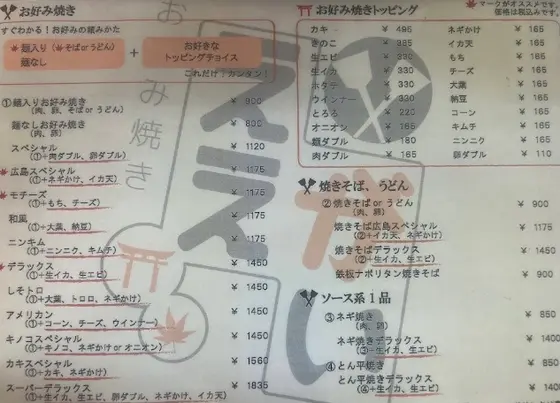 お好み焼き
すぐわかる!お好みの組みかた
麺入り(そばorうどん)
麺なし
+
お好きな
トッピングチョイス
これだけ!カンタン!
①麺入りお好み焼き ¥ 900
(肉、卵、そばorうどん)
麺なしお好み焼き ¥ 800
(肉、卵)
スペシャル ¥ 1120
(①+肉ダブル、卵ダブル)
広島スペシャル ¥ 1175
(①+ネギかけ、イカ天)
モチーズ ¥ 1175
(①+もち、チーズ)
和風 ¥ 1175
(①+大葉、納豆)
ニンキム ¥ 1175
(①+ニンニク、キムチ)
デラックス ¥ 1450
(①+生イカ、生エビ)
しそトロ ¥ 1450
(①+大葉、トロロ、ネギかけ)
アメリカン ¥ 1450
(①+コーン、チーズ、ウインナー)
キノコスペシャル ¥ 1450
(①+キノコ、ネギかけorオニオン)
カキスペシャル ¥ 1560
(①+カキ、ネギかけ)
スーパーデラックス ¥ 1835
(①+生イカ、生エビ、肉ダブル、卵ダブル、ネギかけ、イカ天)
お好み焼き
お好み焼きトッピング
マークがオススメです。
価格は税込みです。
カキ ¥ 495
きのこ ¥ 385
生エビ ¥ 330
生イカ ¥ 330
ホタテ ¥ 330
ウインナー ¥ 330
とろろ ¥ 220
オニオン ¥ 165
麺ダブル ¥ 180
肉ダブル ¥ 165
ネギかけ ¥ 165
イカ天 ¥ 165
もち ¥ 165
チーズ ¥ 165
大葉 ¥ 165
納豆 ¥ 165
コーン ¥ 165
キムチ ¥ 165
ニンニク ¥ 165
卵ダブル ¥ 110
焼きそば、うどん
②焼きそばorうどん ¥ 900
(肉、卵)
焼きそば広島スペシャル ¥ 1175
(②+イカ天、ネギかけ)
焼きそばデラックス ¥ 1450
(②+生イカ、生エビ)
鉄板ナポリタン焼きそば ¥ 900
ソース系1品
③ネギ焼き ¥ 850
(肉、卵)
ネギ焼きデラックス ¥ 1400
(③+生イカ、生エビ)
④とん平焼き ¥ 850
とん平焼きデラックス ¥ 140
(④+生イカ、生エビ)